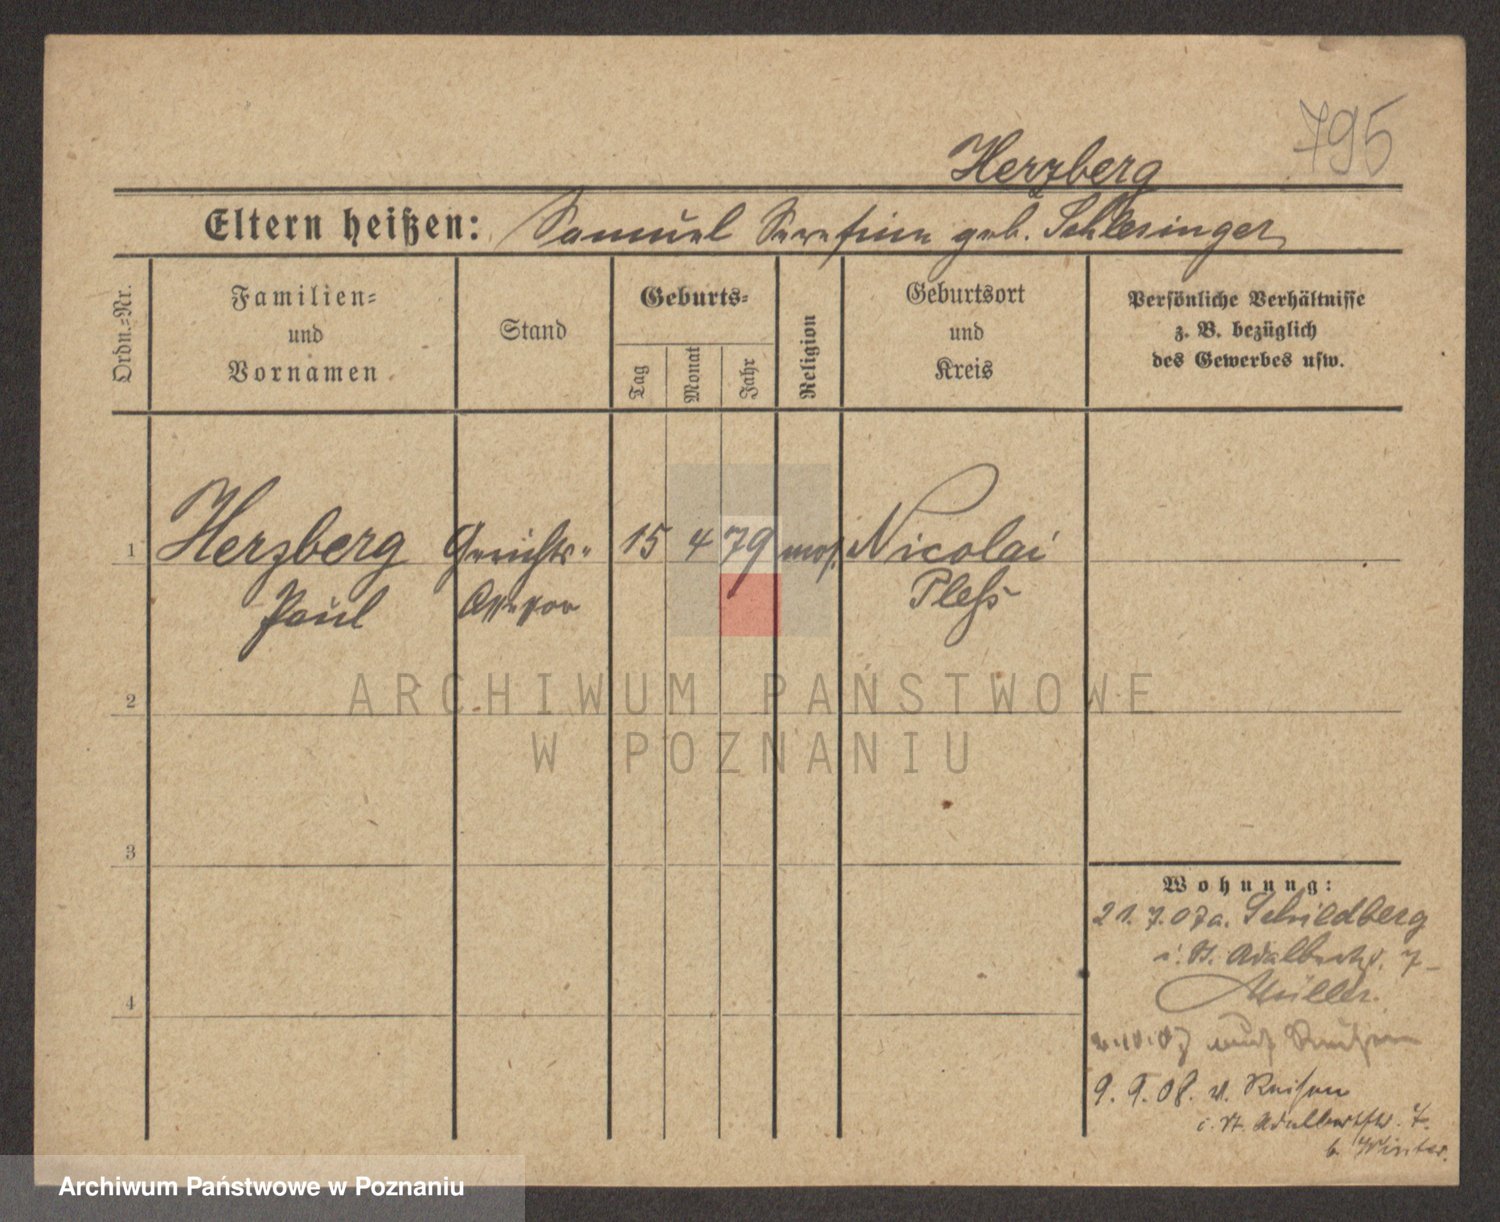 795
Herzberg
Eltern heißen: Samuel Serefine geb. Schlesinger
Ordn.=Nr.
Familien=
und
Vornamen
Stand
Geburts=
Tag
Monat
Jahr
Religion
Geburtsort
und
Kreis
Persönliche Verhältnisse
z. B. bezüglich
des Gewerbes usw.
1 Herzberg Gerichts- 15 4 79 mos. Nicolai
Paul Assessor Pleß
2
ARCHIWUM PAŃSTWOWE
W POZNANIU
3
4
Wohnung:
21. 7. 07 a. Schildberg
i. H. Adalbertstr. 7
Müller.
10. 07 auf Reisen
9. 9. 08. v. Reisen
i. H. Adalbertstr. 7.
b. Winter.
Archiwum Państwowe w Poznaniu